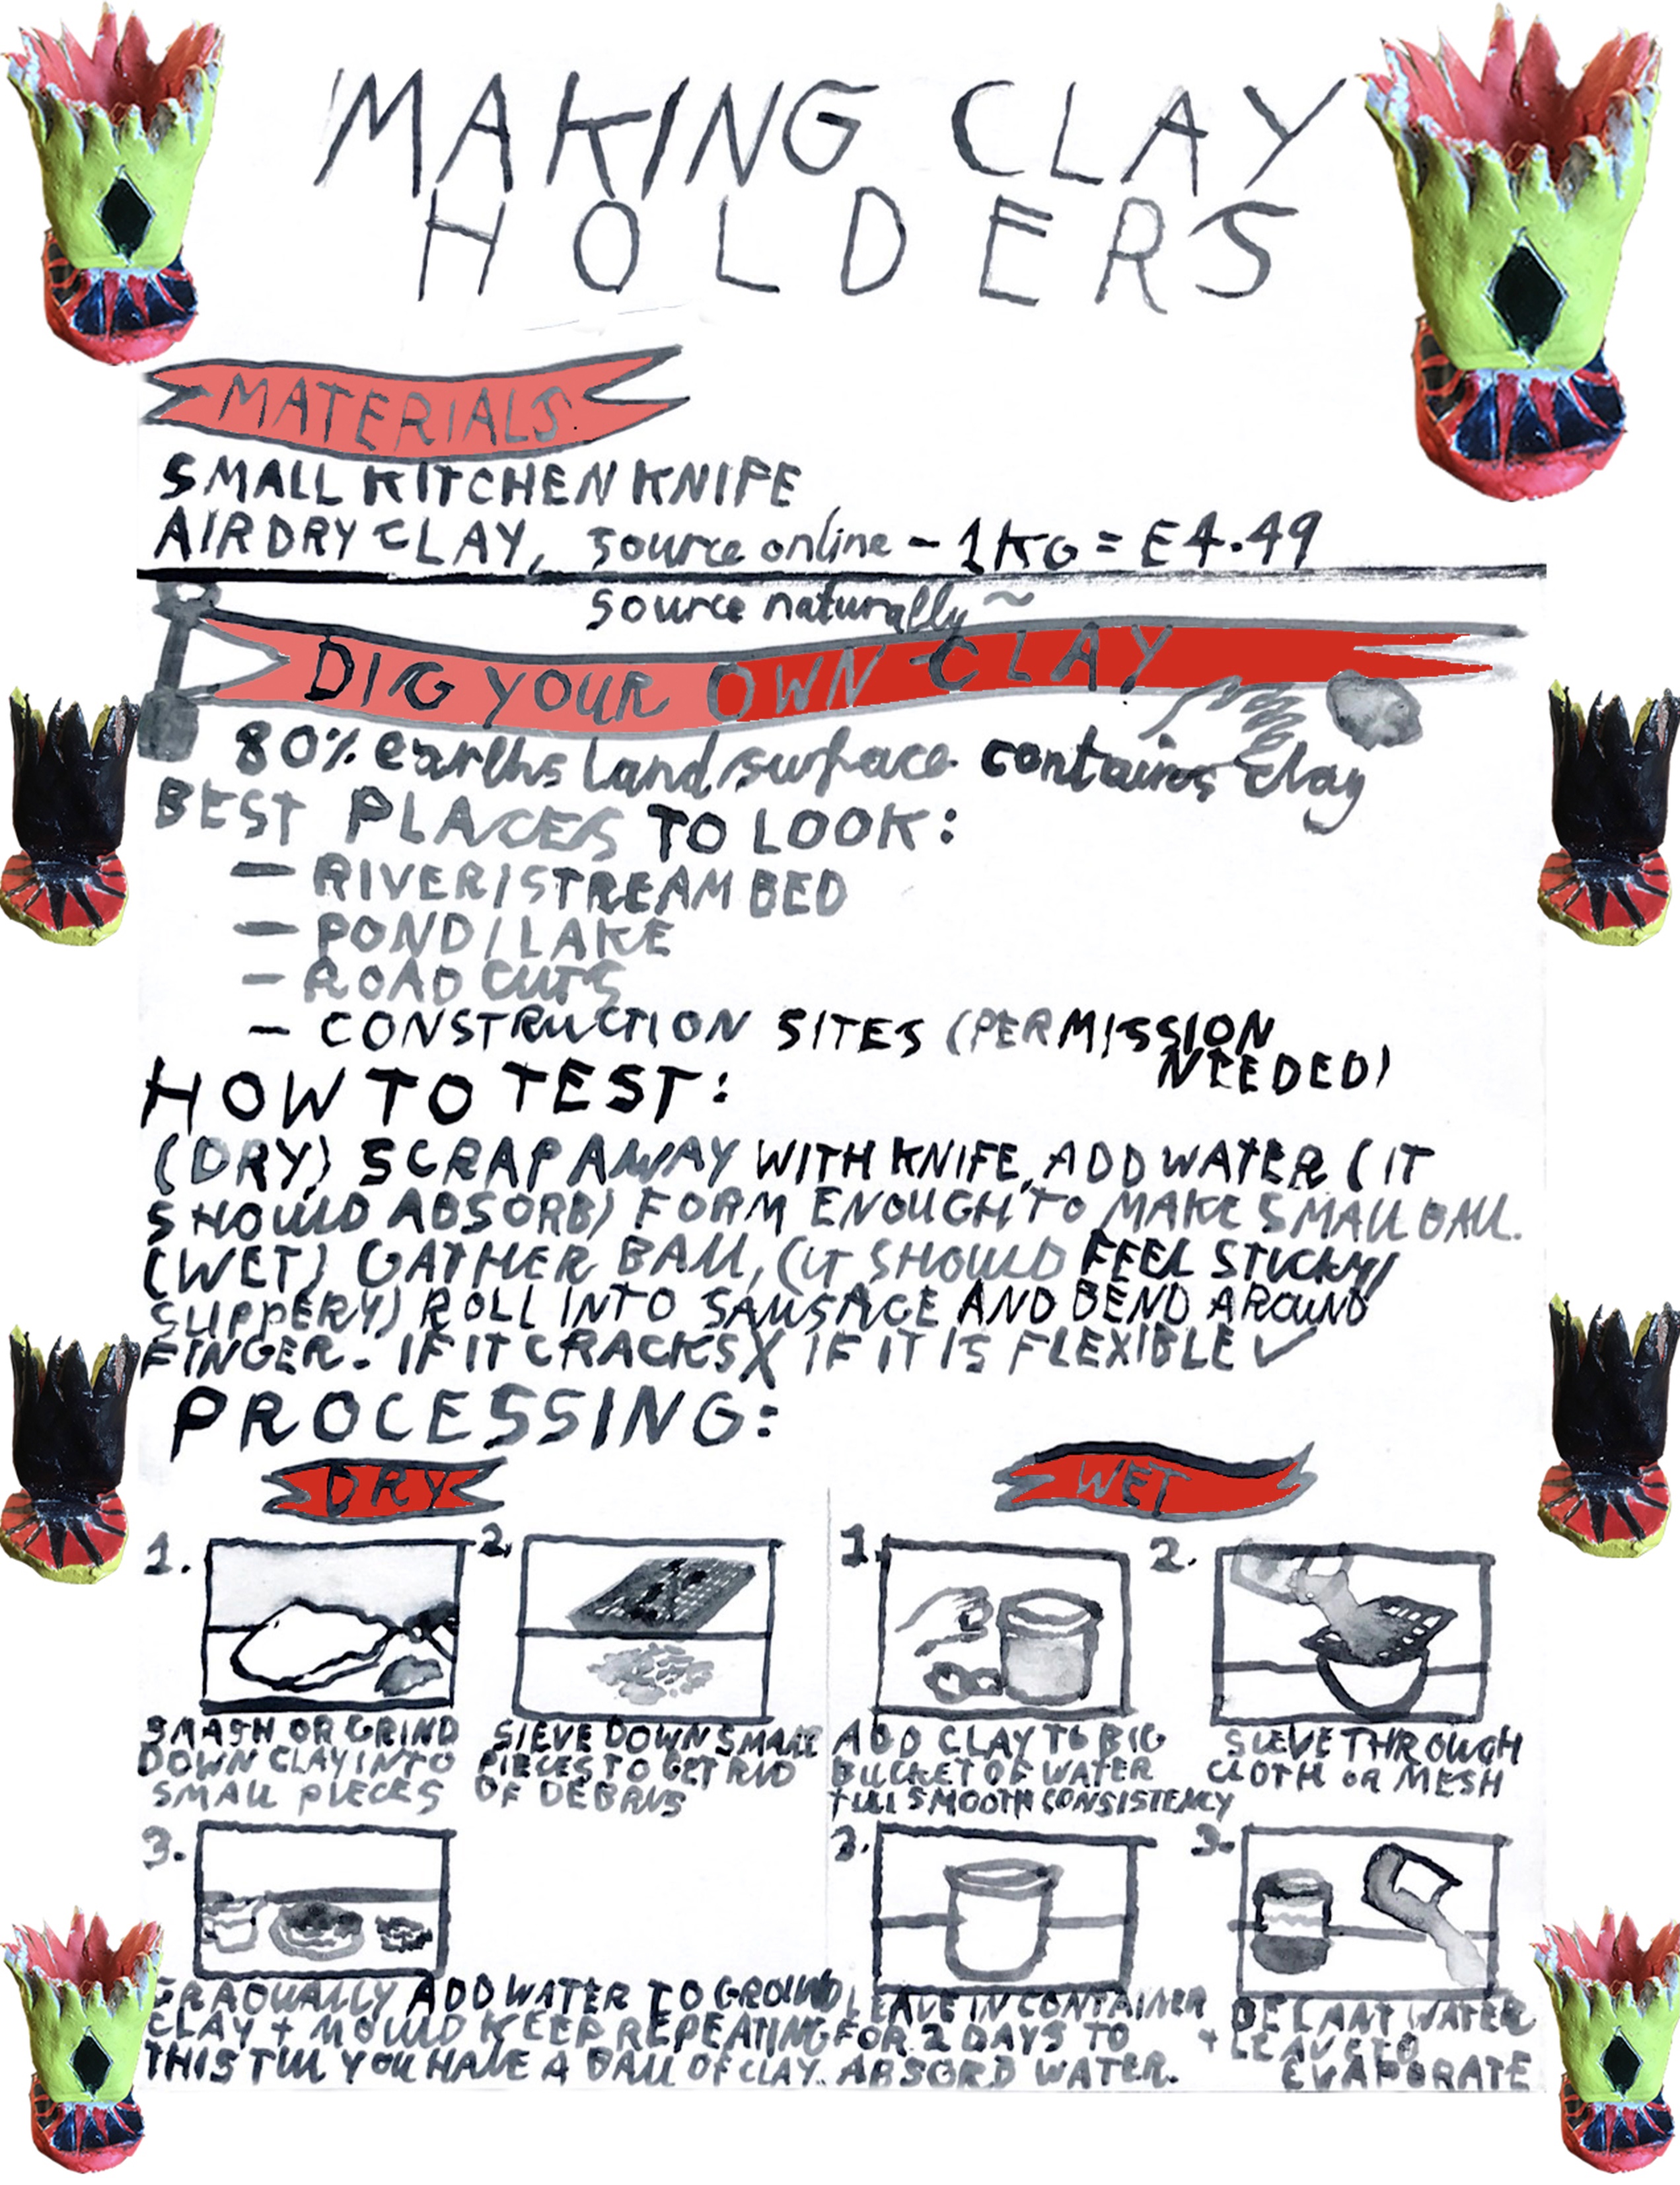 MAKING CLAY
HOLDERS
MATERIALS
SMALL KITCHEN KNIFE
AIR DRY CLAY, source online – 1KG = £4.49
source naturally ~
DIG YOUR OWN CLAY
80% earths land surface contains clay
BEST PLACES TO LOOK:
– RIVER/STREAM BED
– POND/LAKE
– ROAD CUTS
– CONSTRUCTION SITES (PERMISSION
NEEDED)
HOW TO TEST:
(DRY) SCRAP AWAY WITH KNIFE, ADD WATER (IT
SHOULD ABSORB) FORM ENOUGH TO MAKE SMALL BALL.
(WET) GATHER BALL, (IT SHOULD FEEL STICKY/
SLIPPERY) ROLL INTO SAUSAGE AND BEND AROUND
FINGER. IF IT CRACKS X IF IT IS FLEXIBLE ✓
PROCESSING:
DRY
1.
SMASH OR GRIND
DOWN CLAY INTO
SMALL PIECES
2.
SIEVE DOWN SMALL
PIECES TO GET RID
OF DEBRIS
3.
GRADUALLY ADD WATER TO GROUND
CLAY + MOULD KEEP REPEATING
THIS TILL YOU HAVE A BALL OF CLAY.
WET
1.
ADD CLAY TO BIG
BUCKET OF WATER
TILL SMOOTH CONSISTENCY
2.
SIEVE THROUGH
CLOTH OR MESH
3.
LEAVE IN CONTAINER
FOR 2 DAYS TO
ABSORB WATER.
3.
DECANT WATER
+ LEAVE TO
EVAPORATE